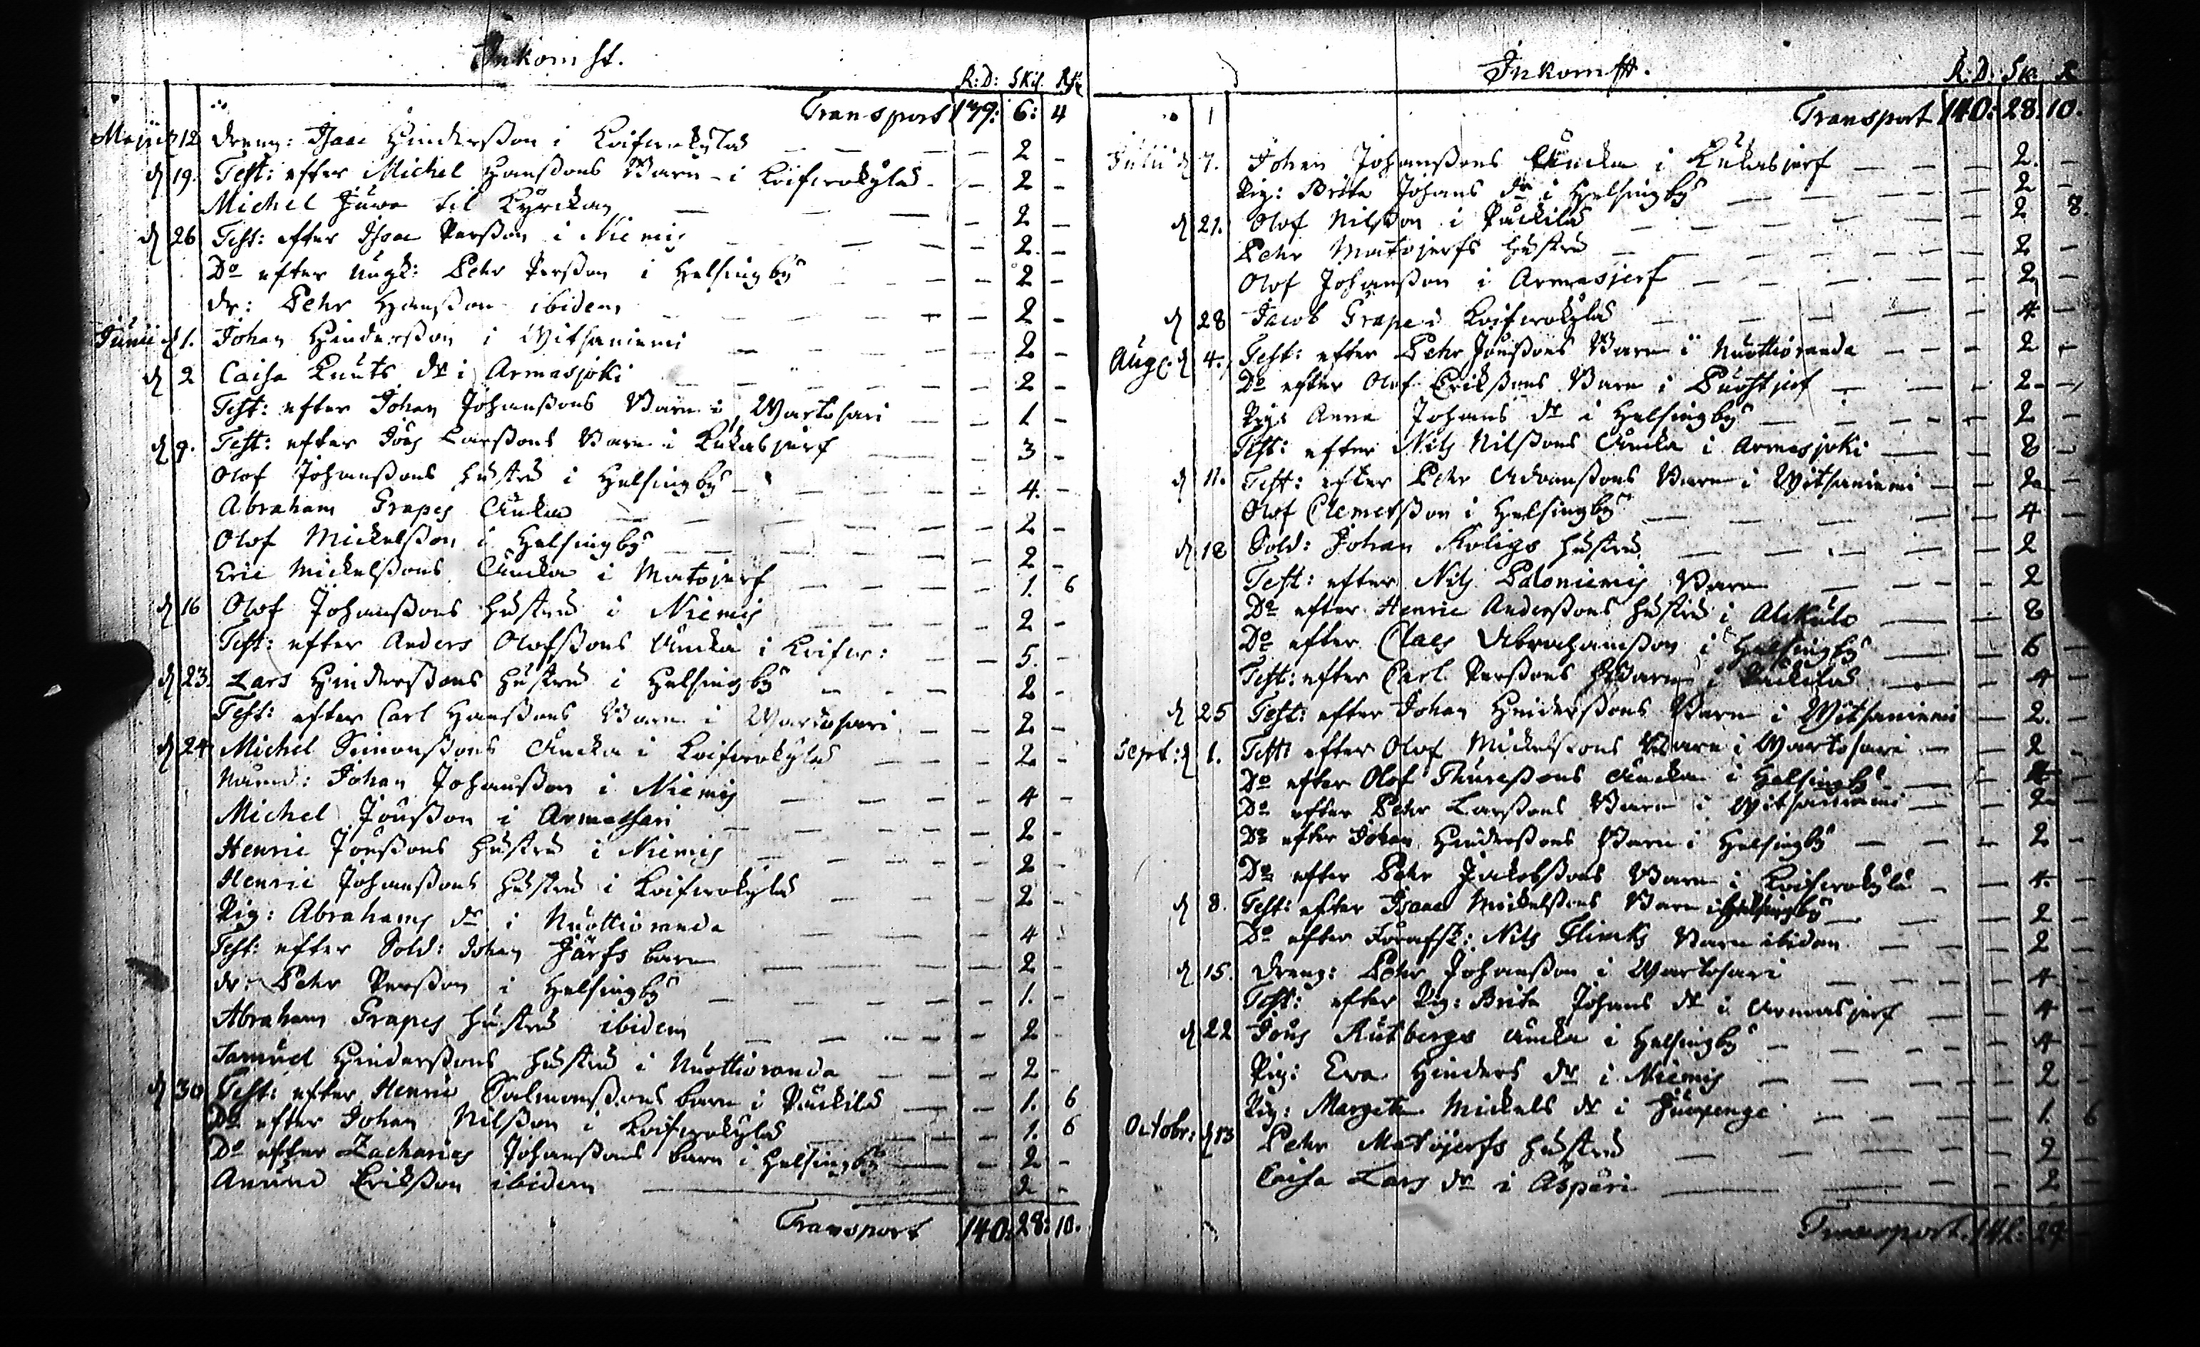 Inkomst.
R:D: Skil. Rst
Transport 139: 6: 4
Maji d 12 Dreng: Isac Hindersson i Koifwokylä 2 -
d 19. Test: efter Michel Hanssons Barn i Koifwokylä 2 -
Michel Juwa til Kyrkan 2 -
d 26 Test: efter Isac Persson i Niemis 2 -
Do efter Ungk: Pehr Persson i Helsingby 2 -
dr: Pehr Hansson ibidem 2 -
Junii d 1. Johan Hindersson i Witsaniemi 2 -
d 2 Caisa Knuts dr i Armasjoki 2 -
Test: efter Johan Johanssons Barn i Wartosari 1 -
d 9. Test: efter Jöns Larssons Barn i Kukasjerf 3 -
Olof Johanssons hustru i Helsingby 4. -
Abraham Grapes Encka 2 -
Olof Mickelsson i Helsingby 2 -
Eric Mickelssons Encka i Matojerf 1. 6
d 16 Olof Johanssons hustru i Niemis 2 -
Test: efter Anders Olofssons Encka i Koifw: 5. -
d 23. Lars Hinderssons hustru i Helsingby 2 -
Test: efter Carl Hanssons Barn i Wartosari 2 -
d 24 Michel Simonssons Encka i Koifwokylä 2 -
Nämd: Johan Johansson i Niemis 4 -
Michel Jönsson i Armassari 2 -
Henric Jönssons hustru i Niemis 2 -
Henric Johanssons hustru i Koifwokylä 2 -
Pig: Abrahams dr i Nuottioranda 4 -
Test: efter Sold: Johan Järfs barn 2 -
dr: Pehr Persson i Helsingby 1. -
Abraham Grapes hustru ibidem 2 -
Samuel Hinderssons hustru i Nuottioranda 2 -
d 30 Test: efter Henric Salmonssons barn i Päckilä 1. 6
Do efter Johan Nilsson i Koifwokylä 1. 6
Do efter Zacharias Johanssons barn i Helsingby 2 -
Anund Eriksson ibidem 2 -
Transport 140: 28: 10.
Inkomst.
R:D. Sk. R
Transport 140: 28. 10.
Julii d 7. Johan Johanssons Encka i Kukasjerf 2. -
Pig: Brita Johans dr i Helsingby 2 -
d 21. Olof Nilsson i Päckilä 2 8
Pehr Matojerfs hustru 2 -
Olof Johansson i Armasjerf 2 -
d 28 Jacob Grape i Koifwokylä 4 -
Aug: d 4. Test: efter Pehr Jönssons Barn i Nuottioranda 2 -
Do efter Olof Erikssons Barn i Puostjerf 2 -
Pig: Anna Johans dr i Helsingby 2
Test: efter Nils Nilssons Encka i Armasjoki 8 -
d 11. Test: efter Pehr Adamssons Barn i Witsaniemi 2 -
Olof Clemetsson i Helsingby 4 -
d 18 Sold: Johan Koligs hustru 2
Test: efter Nils Paloniemis Barn 2
Do efter Henric Anderssons hustru i Alikula 8
Do efter Claes Abrahamsson i Helsingby 6
Test: efter Carl Perssons Barn i Päckilä 4
d 25 Test: efter Johan Hinderssons Barn i Witsaniemi 2.
Sept: d 1. Test: efter Olof Mickelssons Barn i Wartosari 2 -
Do efter Olof Thuressons Encka i Helsingby 4
Do efter Pehr Larssons Barn i Witsaniemi 2
Do efter Johan Hinderssons Barn i Helsingby 2 -
Do efter Pehr Jakobssons Barn i Koifwokylä 4. -
d 8. Test: efter Isaac Mickelssons Barn i Helsingby 2 -
Do efter Nils Flincks Barn ibidem 2 -
d 15. Dreng: Pehr Johansson i Wartosari 4 -
Test: efter Pig: Brita Johans dr i Armasjerf 4 -
d 22 Jöns Rutbergs Encka i Helsingby 4 -
Pig: Eva Hinders dr i Niemis 2 -
Pig: Margeta Mickels dr i Juopenge 1. 6
Octobr: d 13 Pehr Matojerfs hustru 2 -
Caisa Lars dr i Alperi 2 -
Transport. 142: 29. -